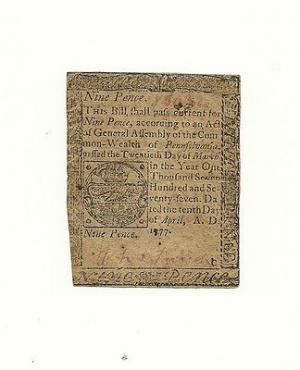 Nine Pence.
THIS Bill shall pass current for
Nine Pence, according to an Act
of General Assembly of the Com
mon-Wealth of Pennsylvania,
passed the Twentieth Day of March
in the Year One
Thousand Seven
Hundred and Se
venty-seven. Da
ted the tenth Day
of April, A. D.
Nine Pence. 1777.